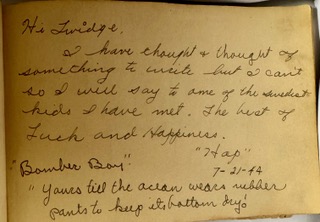 Hi Twidge,
I have thought & thought of
something to write but I can't
so I will say to one of the swedest
kids I have met. The best of
Luck and Happiness.
"Hap"
"Bomber Boy"
7-21-44
"Yours till the ocean wears rubber
pants to keep its bottom dry"